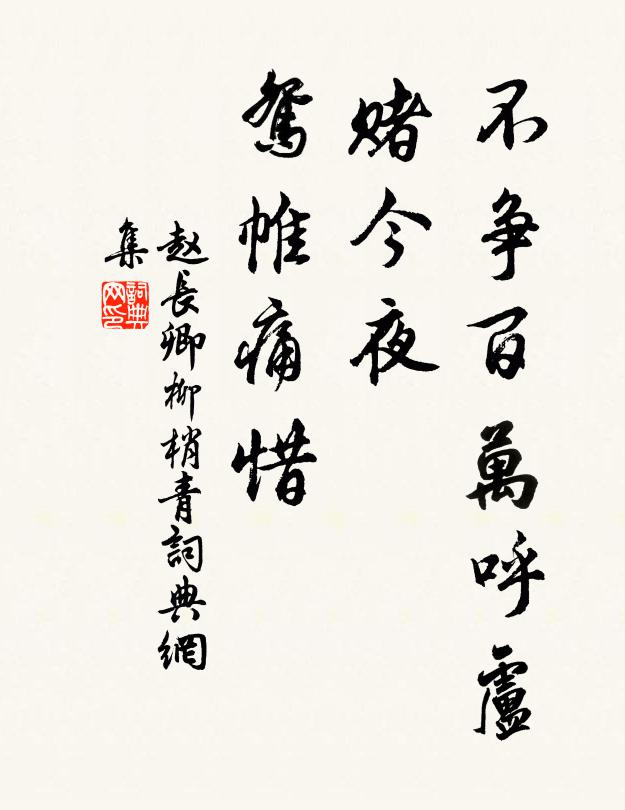 不争百萬呼盧
赌今夜
鸳帷痛惜
赵長卿柳梢青詞典網
集
詞典
网印